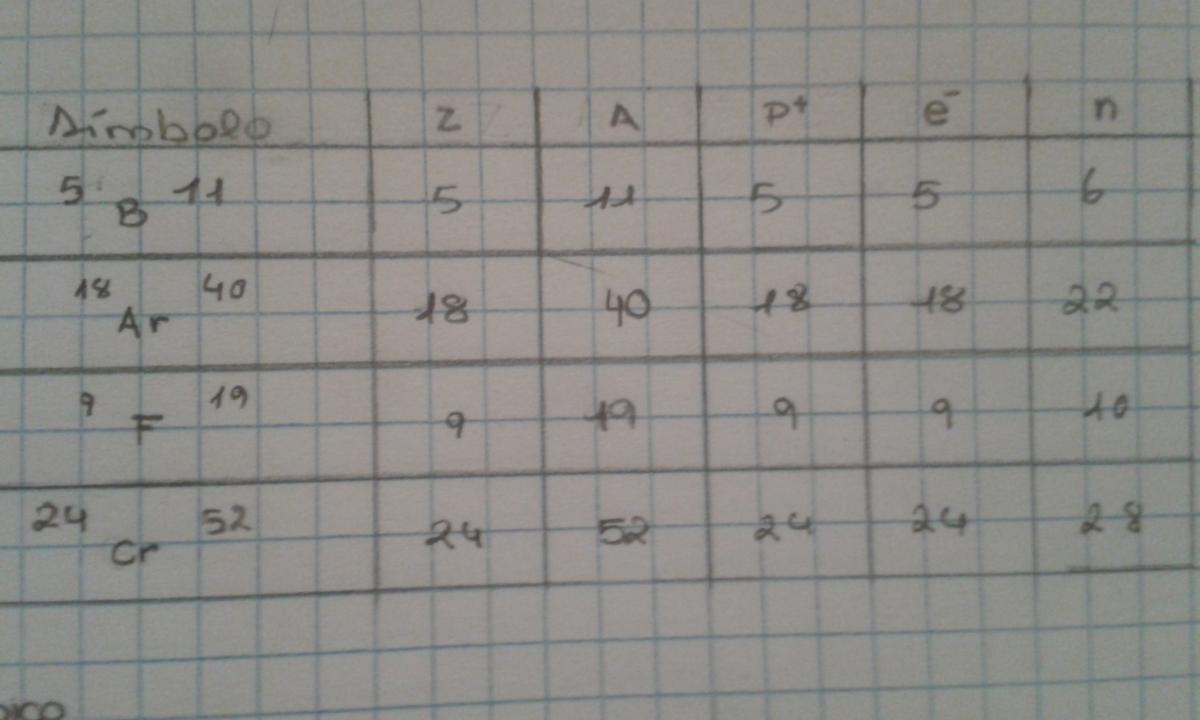 Símbolo Z A P+ e- n
5 B 11 5 11 5 5 6
18 Ar 40 18 40 18 18 22
9 F 19 9 19 9 9 10
24 Cr 52 24 52 24 24 28